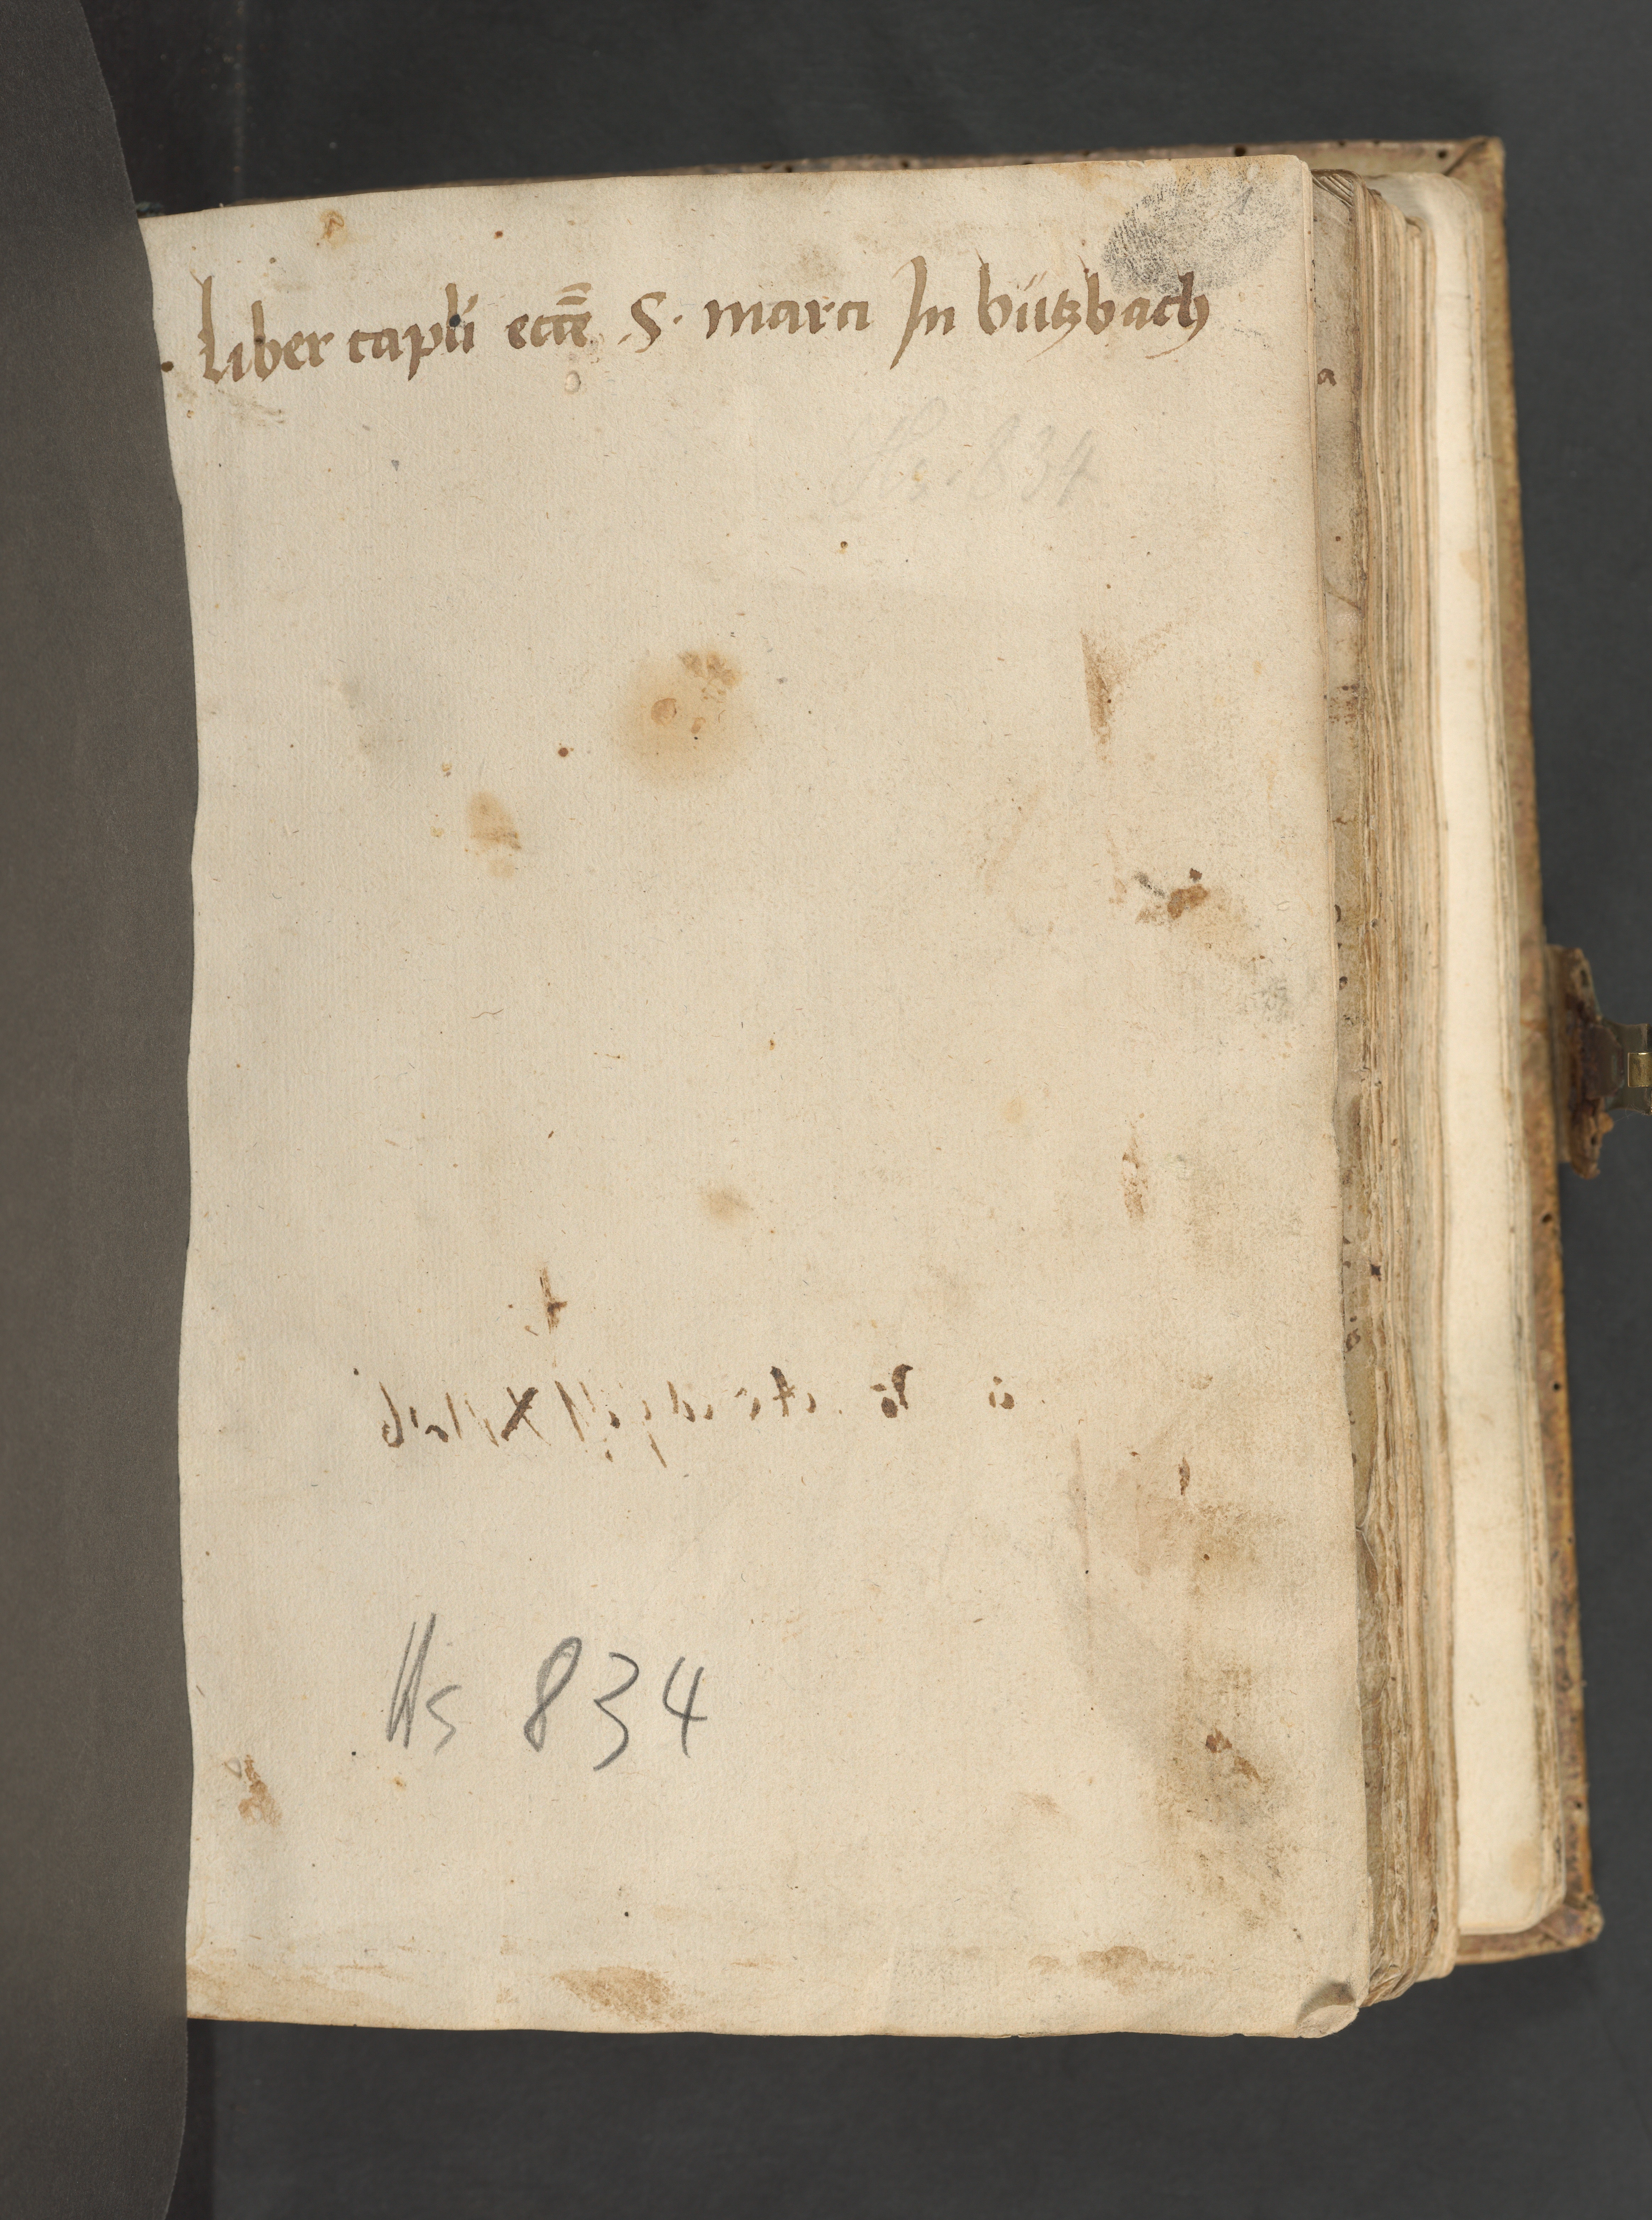 1
. Liber capli eccē S. marci In bützbach
Hs. 834
Hs 834